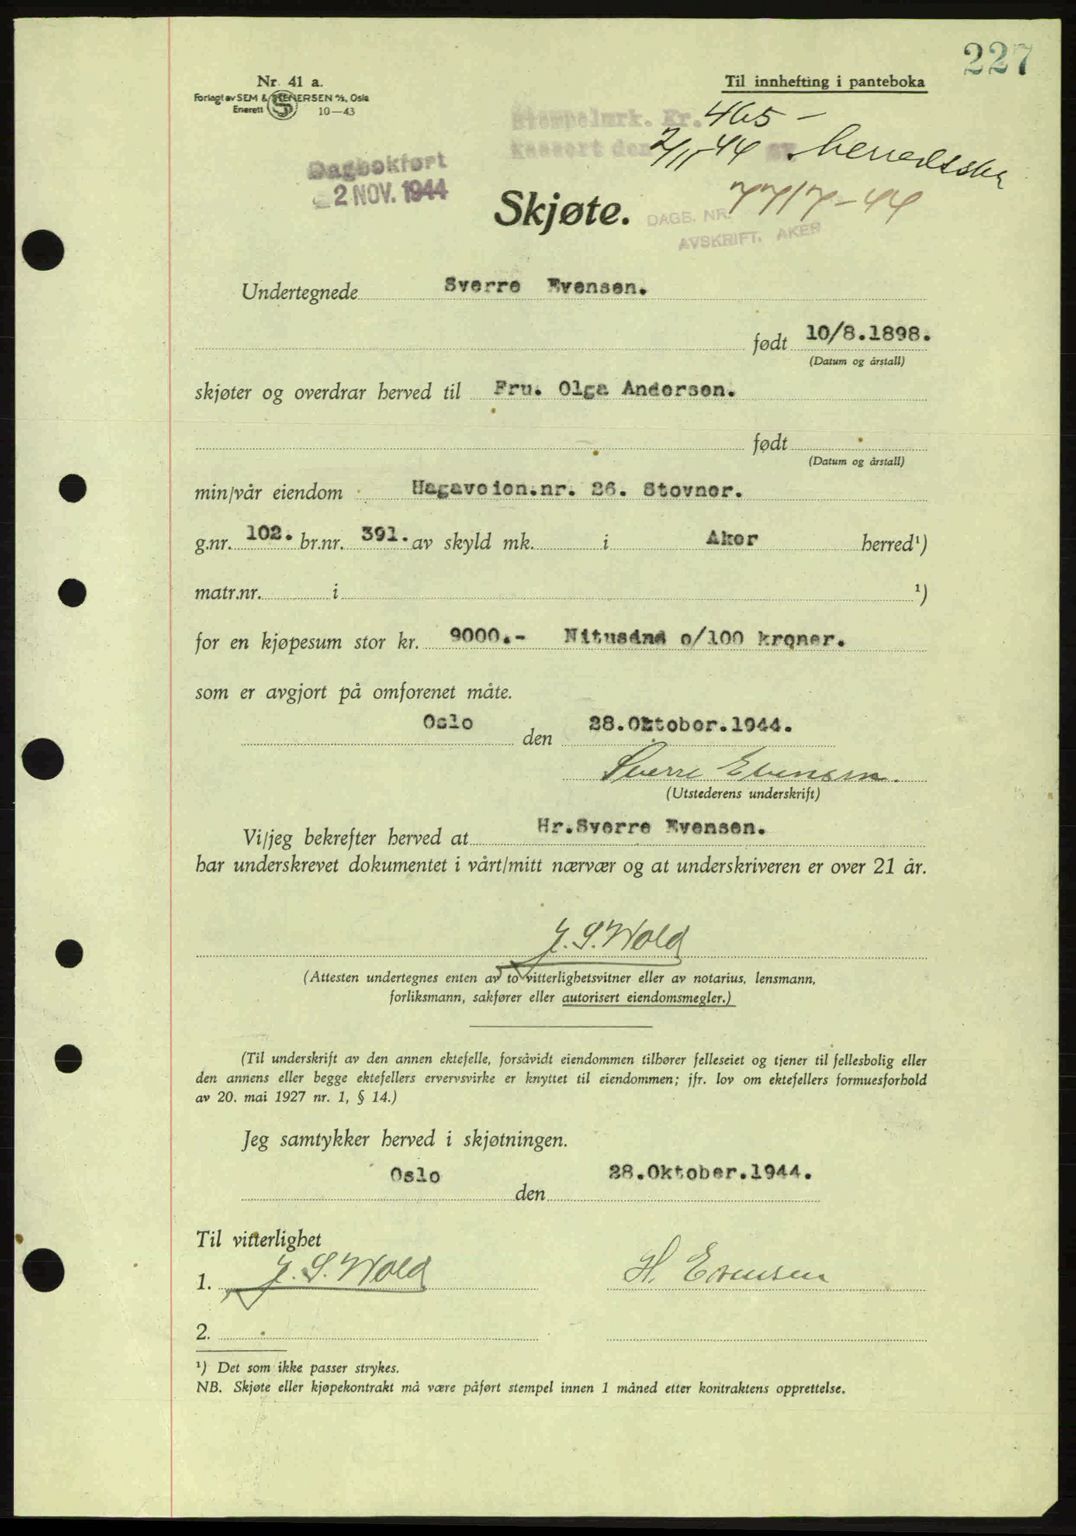 227
Nr. 41 a.
Til innhefting i panteboka
Forlagt av SEM & STENERSEN A/S, Oslo
Enerett 10—43
Stempelmrk. Kr. 465 –
kassert den 2/11-44
Dagbokført
2 NOV. 1944
Skjøte.
DAGB. NR. 7717-44
AVSKRIFT, AKER
Undertegnede Sverre Evensen.
født 10/8.1898.
(Datum og årstall)
skjøter og overdrar herved til Fru. Olga Andersen.
født
(Datum og årstall)
min/vår eiendom Hagaveien.nr. 26. Stovner.
g.nr. 102. br.nr. 391. av skyld mk. i Aker herred¹)
matr.nr. i ¹)
for en kjøpesum stor kr. 9000.- Nitusind o/100 kroner.
som er avgjort på omforenet måte.
Oslo den 28.Oktober.1944.
Sverre Evensen.
(Utstederens underskrift)
Vi/jeg bekrefter herved at Hr.Sverre Evensen.
har underskrevet dokumentet i vårt/mitt nærvær og at underskriveren er over 21 år.
J. S. Wold
(Attesten undertegnes enten av to vitterlighetsvitner eller av notarius, lensmann,
forliksmann, sakfører eller autorisert eiendomsmegler.)
(Til underskrift av den annen ektefelle, forsåvidt eiendommen tilhører felleseiet og tjener til fellesbolig eller
den annens eller begge ektefellers ervervsvirke er knyttet til eiendommen; jfr. lov om ektefellers formuesforhold
av 20. mai 1927 nr. 1, § 14.)
Jeg samtykker herved i skjøtningen.
Oslo den 28.Oktober.1944.
Til vitterlighet
1. J. S. Wold H. Evensen
2.
¹) Det som ikke passer strykes.
NB. Skjøte eller kjøpekontrakt må være påført stempel innen 1 måned etter kontraktens opprettelse.